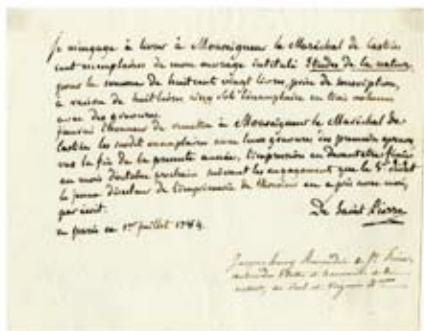 Je m'engage à livrer à Monseigneur le Maréchal de Castries
cent exemplaires de mon ouvrage intitulé Etudes de la nature,
pour la somme de huit cent vingt livres, prix de souscription,
à raison de huit livres cinq sols l'exemplaire en trois volumes
avec des gravures.
j'aurai l'honneur de remettre à Monseigneur le Maréchal de
Castries les susdit exemplaires avec leurs gravures
vers la fin de la presente année, l'impression en devant etre finie
au mois d'octobre prochain suivant les engagements que le Sr
le jeune directeur de l'imprimerie de Monsieur en a pris avec moi,
par écrit.
De Saint Pierre
en paris ce 1er juillet 1784.
Jacques henry Bernardin de St Pierre
auteur des Etudes